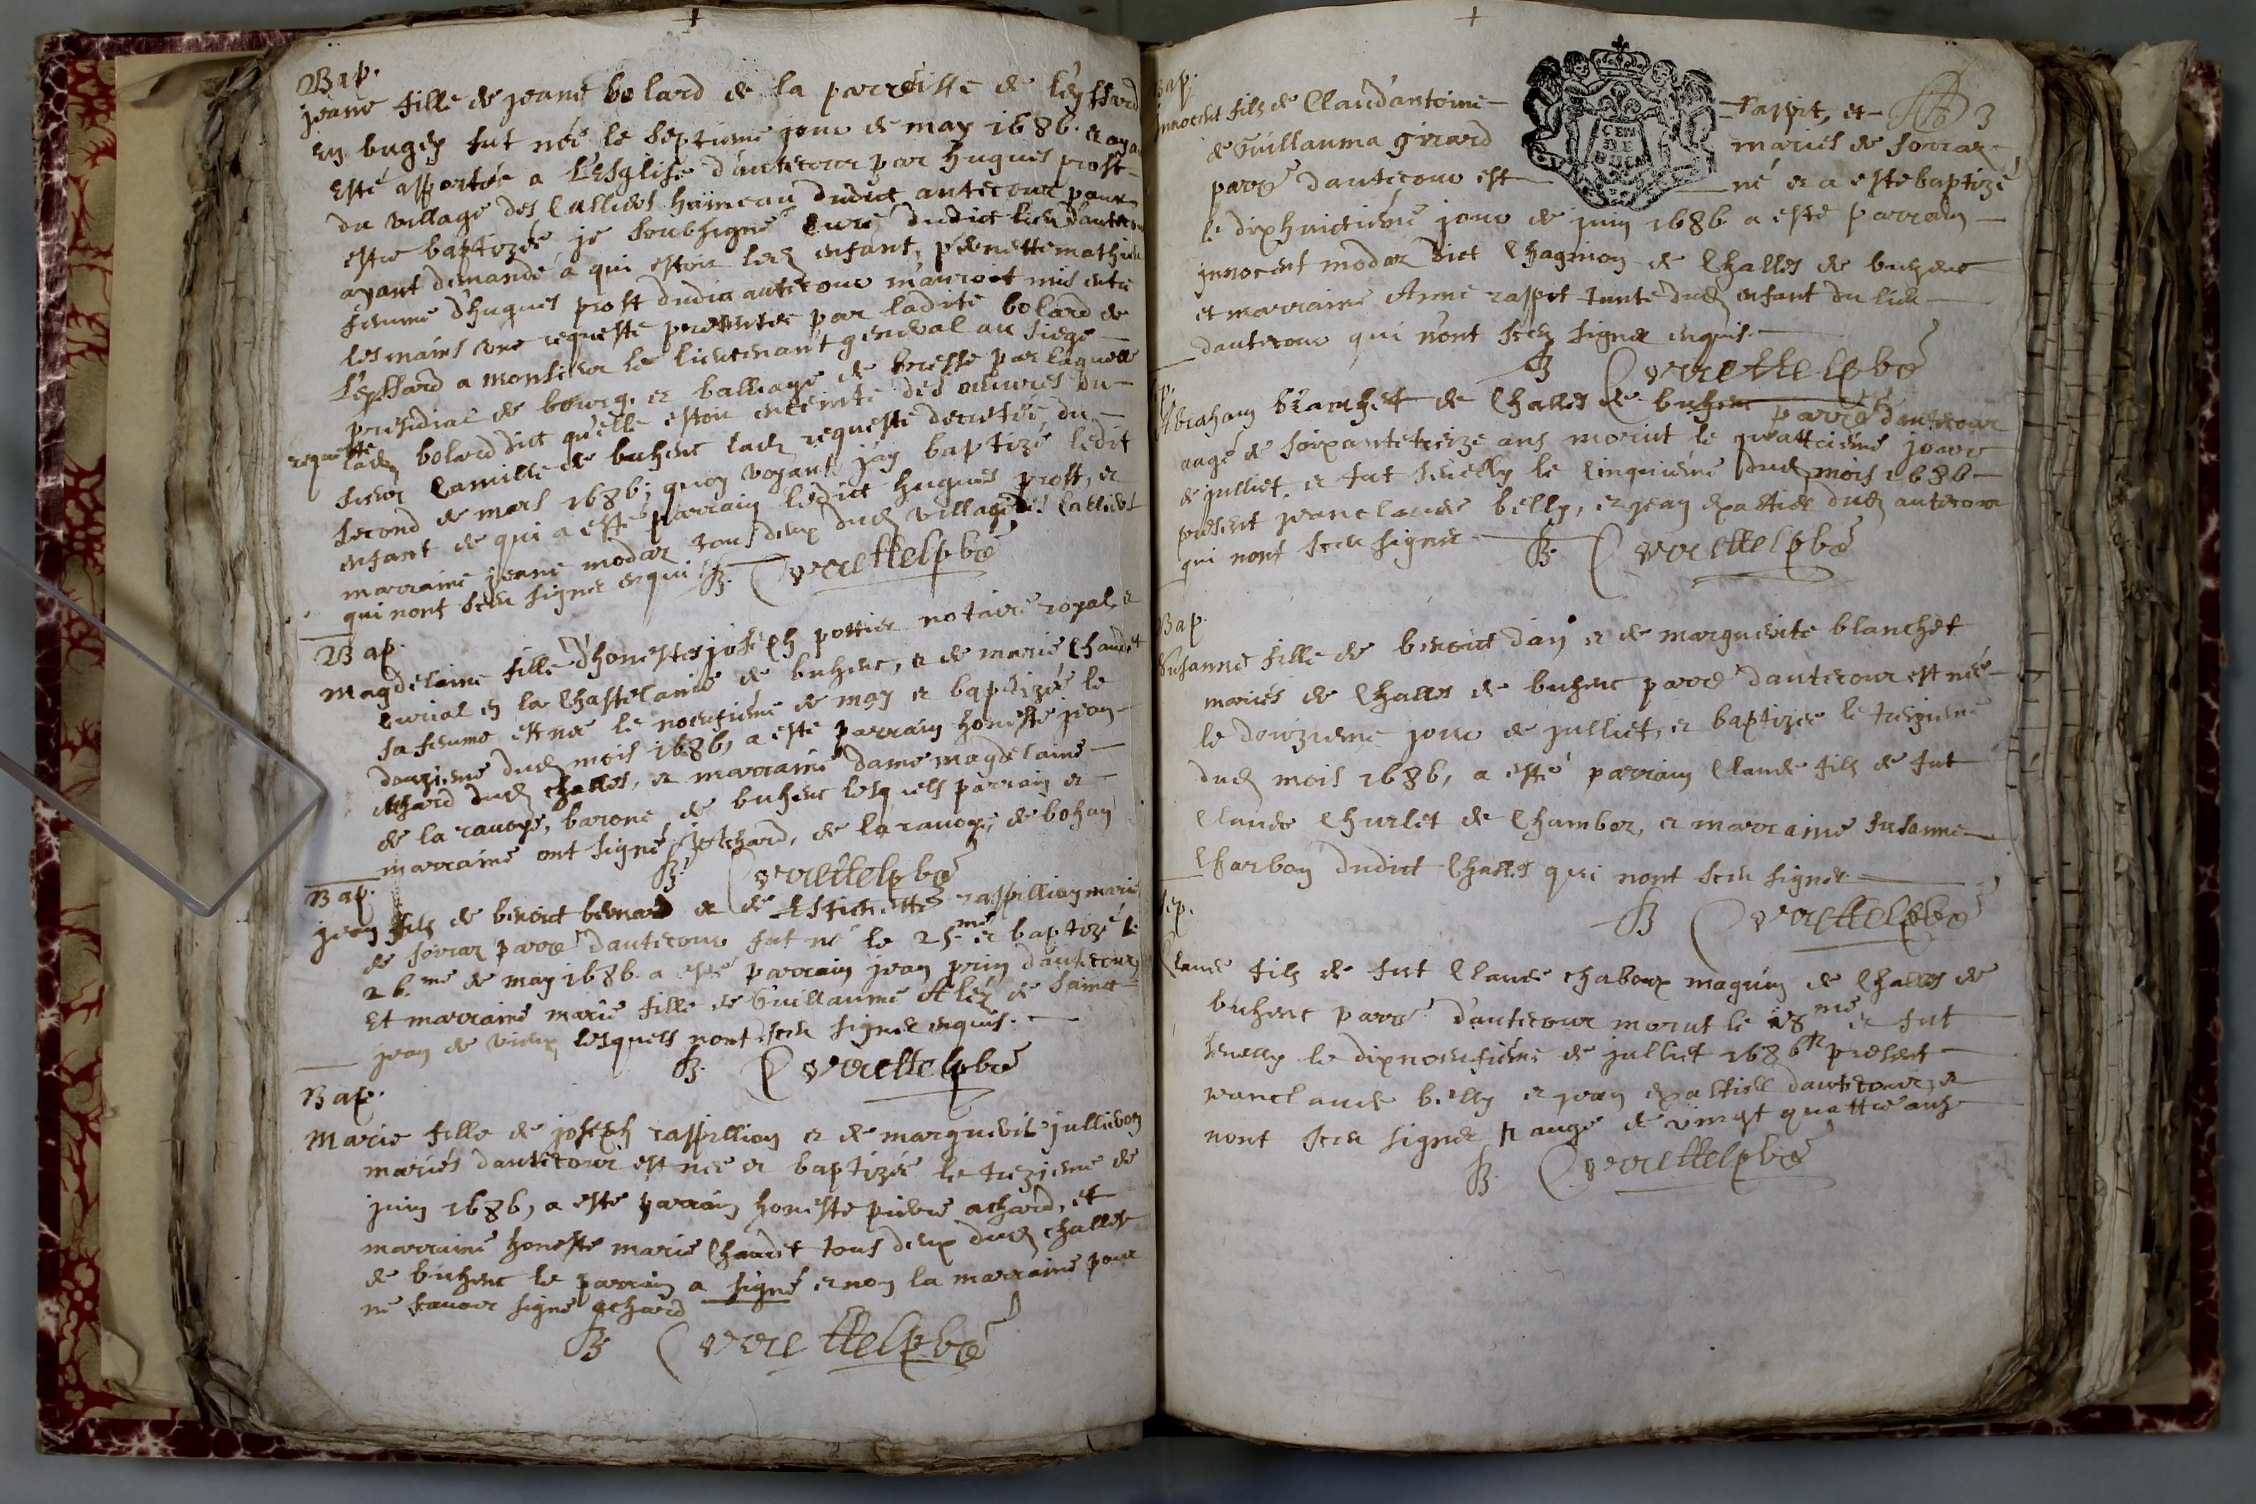 Bap.
jeane fille de jeane bolard de la parroisse de leyssard
en bugey fut née le septieme jour de may 1686. et aya
esté apportée a l'Esglise d'autecour par hugues prost
du village des Calliers hameau dudict autecour pour
estre baptizée je soubsigné curé dudict lieu d'autecour
ayant demandé a qui estoit led enfant, pernette mathieu
femme d'hugues prost dudict autecour m'auroit mis entre
les mains une requeste presentée par ladite bolard de
leyssard a monsieur le lieutenant general au siege
presidial de bourg, et balliage de bresse par laquelle
requeste
lad bolard dict qu'elle estoit enceinte des oeuvres du
sieur Camille de buhenc lad requeste decretée, du
second de mars 1686; quoy voyant j'ay baptizé ledit
enfant de qui a esté parrain ledict hugues prost, et
marraine jeane modar tous deux dud village des Calliers
qui n'ont sceu signer enquis
B. Cvrettelpbre
Bap.
Magdelaine fille d'honestes joseph pottier notaire royal et
curial en la Chastelanie de buhenc, et de marie Chaudet
sa femme est née le neufieme de may et baptizée le
douzieme dud mois 1686, a esté parrain honeste jean
Achard dud challes, et marraine dame magdelaine
de la ravoye, barone de buhenc lesquels parrain et
marraine ont signé, J. achard, de la ravoye de bohan
B. Cvrettelpbre
Bap.
jean fils de benoict bernard et de Estiennette raspillion mariés
de sorraz parre d'autecour fut né le 25.me et baptizé le
26.me de may 1686. a esté parrain jean prin d'autecour
Et marraine marie fille de Guillaume Aléz de Sainct
jean de vieux lesquels n'ont sceu signer enquis.
B. Cvrettelpbre
Bap.
Marie fille de joseph raspillion et de marguerite jullieron
mariés d'autecour est née et baptizée le trezieme de
juin 1686, a esté parrain honeste pierre achard, et
marraine honeste marie Chaudet tous deux dud challes
de buhenc le parrain a signé et non la marraine pour
ne scavoir signé achard
B Cvrettelpbre
Bap.
Innocent fils de Claud'antoine raspit, et 3
de Guillauma girard mariés de sorraz
parre d'autecour est né et a este baptizé
le dixhuictieme jour de juin 1686 a esté parrain
jnnocent modar dict Chagnion de Challes de buhenc
et marraine Anne raspit tante dud enfant du lieu
d'autecour qui n'ont sceu signer enquis.
B Cvrettelpbre
Abraham blanchet de Challes de buhenc parre d'autecour
aagé de soixantetreize ans morut le quattrieme jour
de julliet. et fut sevelly le Cinquieme dud mois 1686
present jeanclaude belly, et jean expastiel dud autecour
qui n'ont sceu signer
B. Cvrettelpbre
Bap.
Susanne fille de benoict dain et de marguerite blanchet
mariés de Challes de buhenc parre d'autecour est née
le douzieme jour de julliet, et baptizée le trezieme
dud mois 1686, a esté parrain Claude fils de fut
Claude Churlet de Chambor, et marraine susanne
Charbon dudict Challes qui n'ont sceu signer
B Cvrettelpbre
Sep.
Claude fils de fut Claude chaboux maguin de Challes de
buhenc parre d'autecour morut le 18me et fut
sevelly le dixneufieme de julliet 1686 present
jeanclaude belly et jean expastiel d'autecour, et
n'ont sceu signer aagé de vingt quattre ans
B. Cvrettelpbre